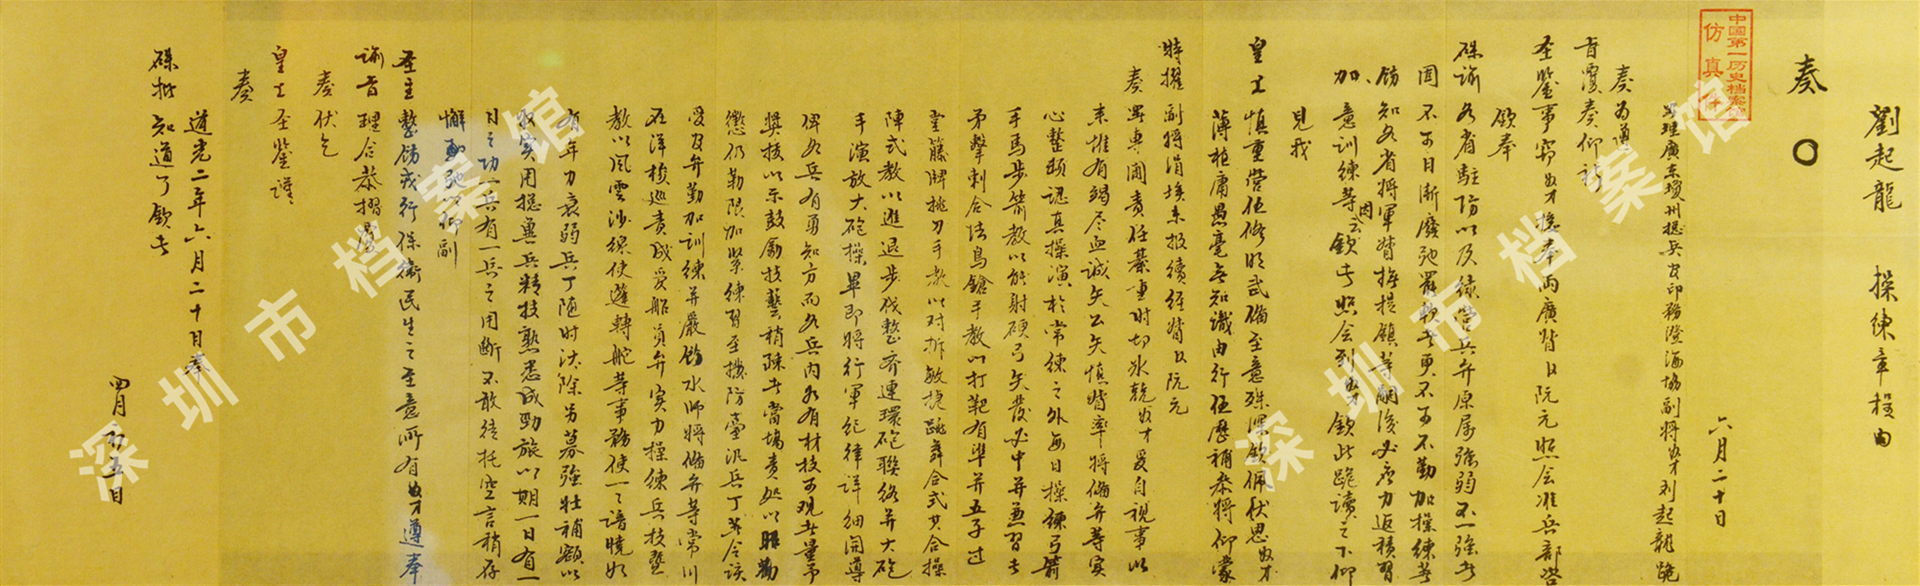 劉起龍 操練章程由
六月二十日
奏
中国第一历史档案馆
仿真件
署理廣東瓊州總兵官印務澄海協副將奴才劉起龍跪
奏為遵
旨覆奏仰祈
聖鑒事竊奴才接奉兩廣督臣阮元照會准兵部咨
欽奉
硃諭各省駐防以及綠營兵弁原屬強弱不一強者
固不可日漸廢弛罷軟者更不可不勤加操練著
飭知各省將軍督撫提鎮等嗣後必應力返積習
加意訓練等因欽此照会到奴才欽此跪讀之下仰
見我
皇上慎重營伍修明武備至意殊深欽佩伏思奴才
薄植庸愚毫無知識由行伍歷補參將仰蒙
特擢副將涓埃未报續經督臣阮元
奏署專閫責任綦重時切冰兢奴才受自視事以
来惟有竭尽血誠矢公矢慎督率將俻弁等實
心整頓認真操演於常練之外每日操練弓箭
手馬步箭教以能射硬弓矢發必中并兼習長
矛擊刺合法鳥鎗手教以打靶有準并五子过
堂藤牌挑刀手教以对拆敏捷跳舞合式其合操
陣式教以進退步伐整齐連環砲聯絡并大砲
手演放大砲操畢即將行軍紀律详细開導
俾各兵有勇知方而各兵内如有材技可观者量予
獎拔以示鼓勵技藝稍疎者當場责处以昭勸
懲仍勒限加紧練習至撥防臺汛兵丁并令该
管官弁勤加訓練并嚴飭水师將俻弁等常川
在洋梭巡责成管船員弁實力操練兵技暨
教以風雲沙線使蓬轉舵等事務使一一谙曉如
有年力衰弱兵丁随时汰除另募強壮補額以
收实用總冀兵精技熟悉成勁旅以期一日有一
日之功一兵有一兵之用断不敢徒托空言稍存
懈弛以仰副
聖主整飭戎行保衛民生之至意所有奴才遵奉
諭旨理合恭摺覆
奏伏乞
皇上聖鉴謹
奏
道光二年六月二十日奉
硃批知道了欽此
四月初五日
深圳市档案馆
深圳市档案馆